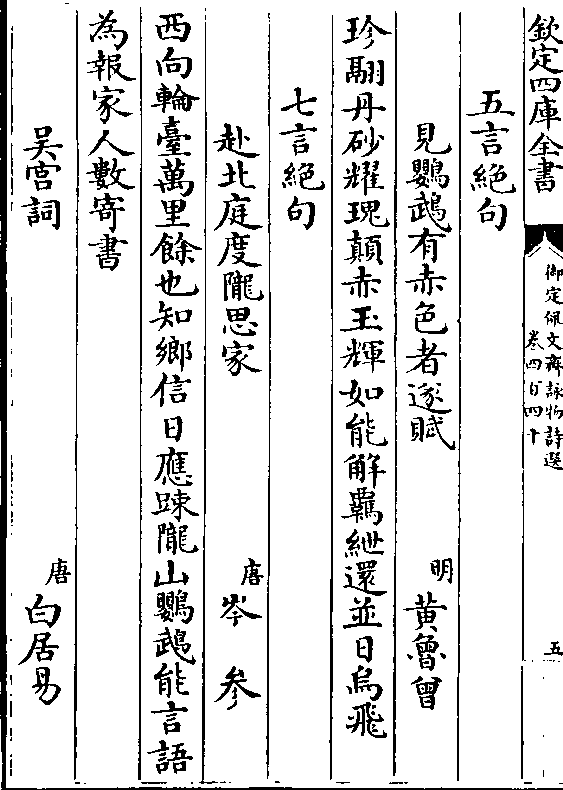 欽定四庫全書
御定佩文齋詠物詩選
卷四百四十
五
五言絕句
見鸚鵡有赤色者遂賦
明 黃魯曾
珍翮丹砂耀瑰顛赤玉輝如能解羈紲還並日烏飛
七言絕句
赴北庭度隴思家
唐 岑參
西向輪臺萬里餘也知鄉信日應踈隴山鸚鵡能言語
為報家人數寄書
吴宫詞
唐 白居易